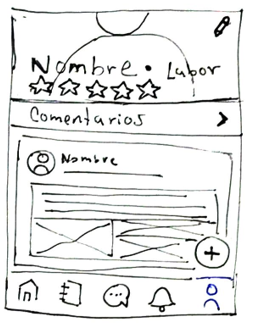 Nombre • Labor
Comentarios
Nombre